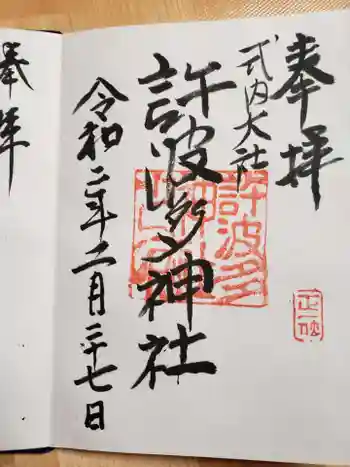 奉拝
式内大社
許波多神社
令和二年二月二十七日
許波多
神社
正一位
奉拝